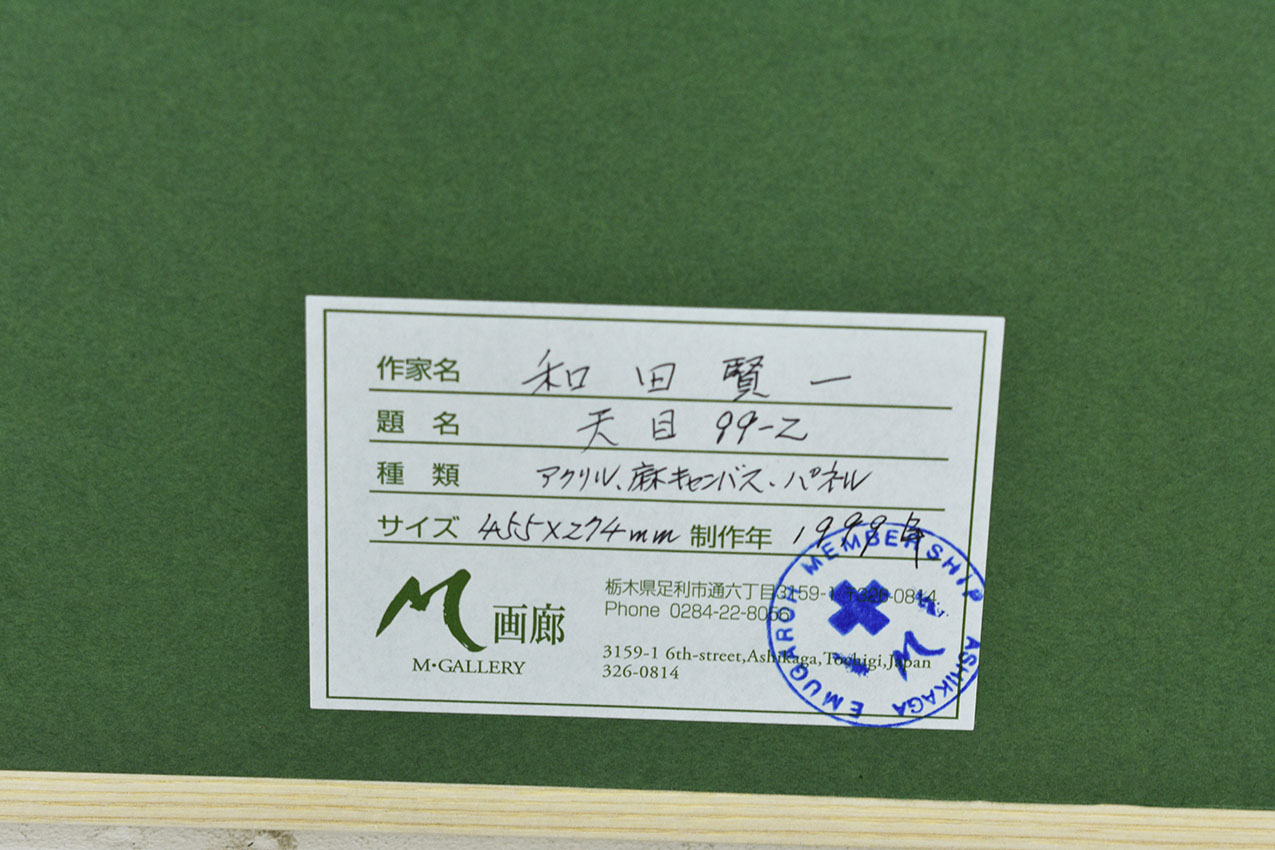 作家名 和田賢一
題名 天目 99-Z
種類 アクリル、麻キャンバス、パネル
サイズ 455×274mm 制作年 1999年
M画廊
M・GALLERY
栃木県足利市通六丁目3159-1 〒326-0814
Phone 0284-22-8056
3159-1 6th-street,Ashikaga,Tochigi,Japan
326-0814
EMUGAROH MEMBERSHIP ASHIKAGA